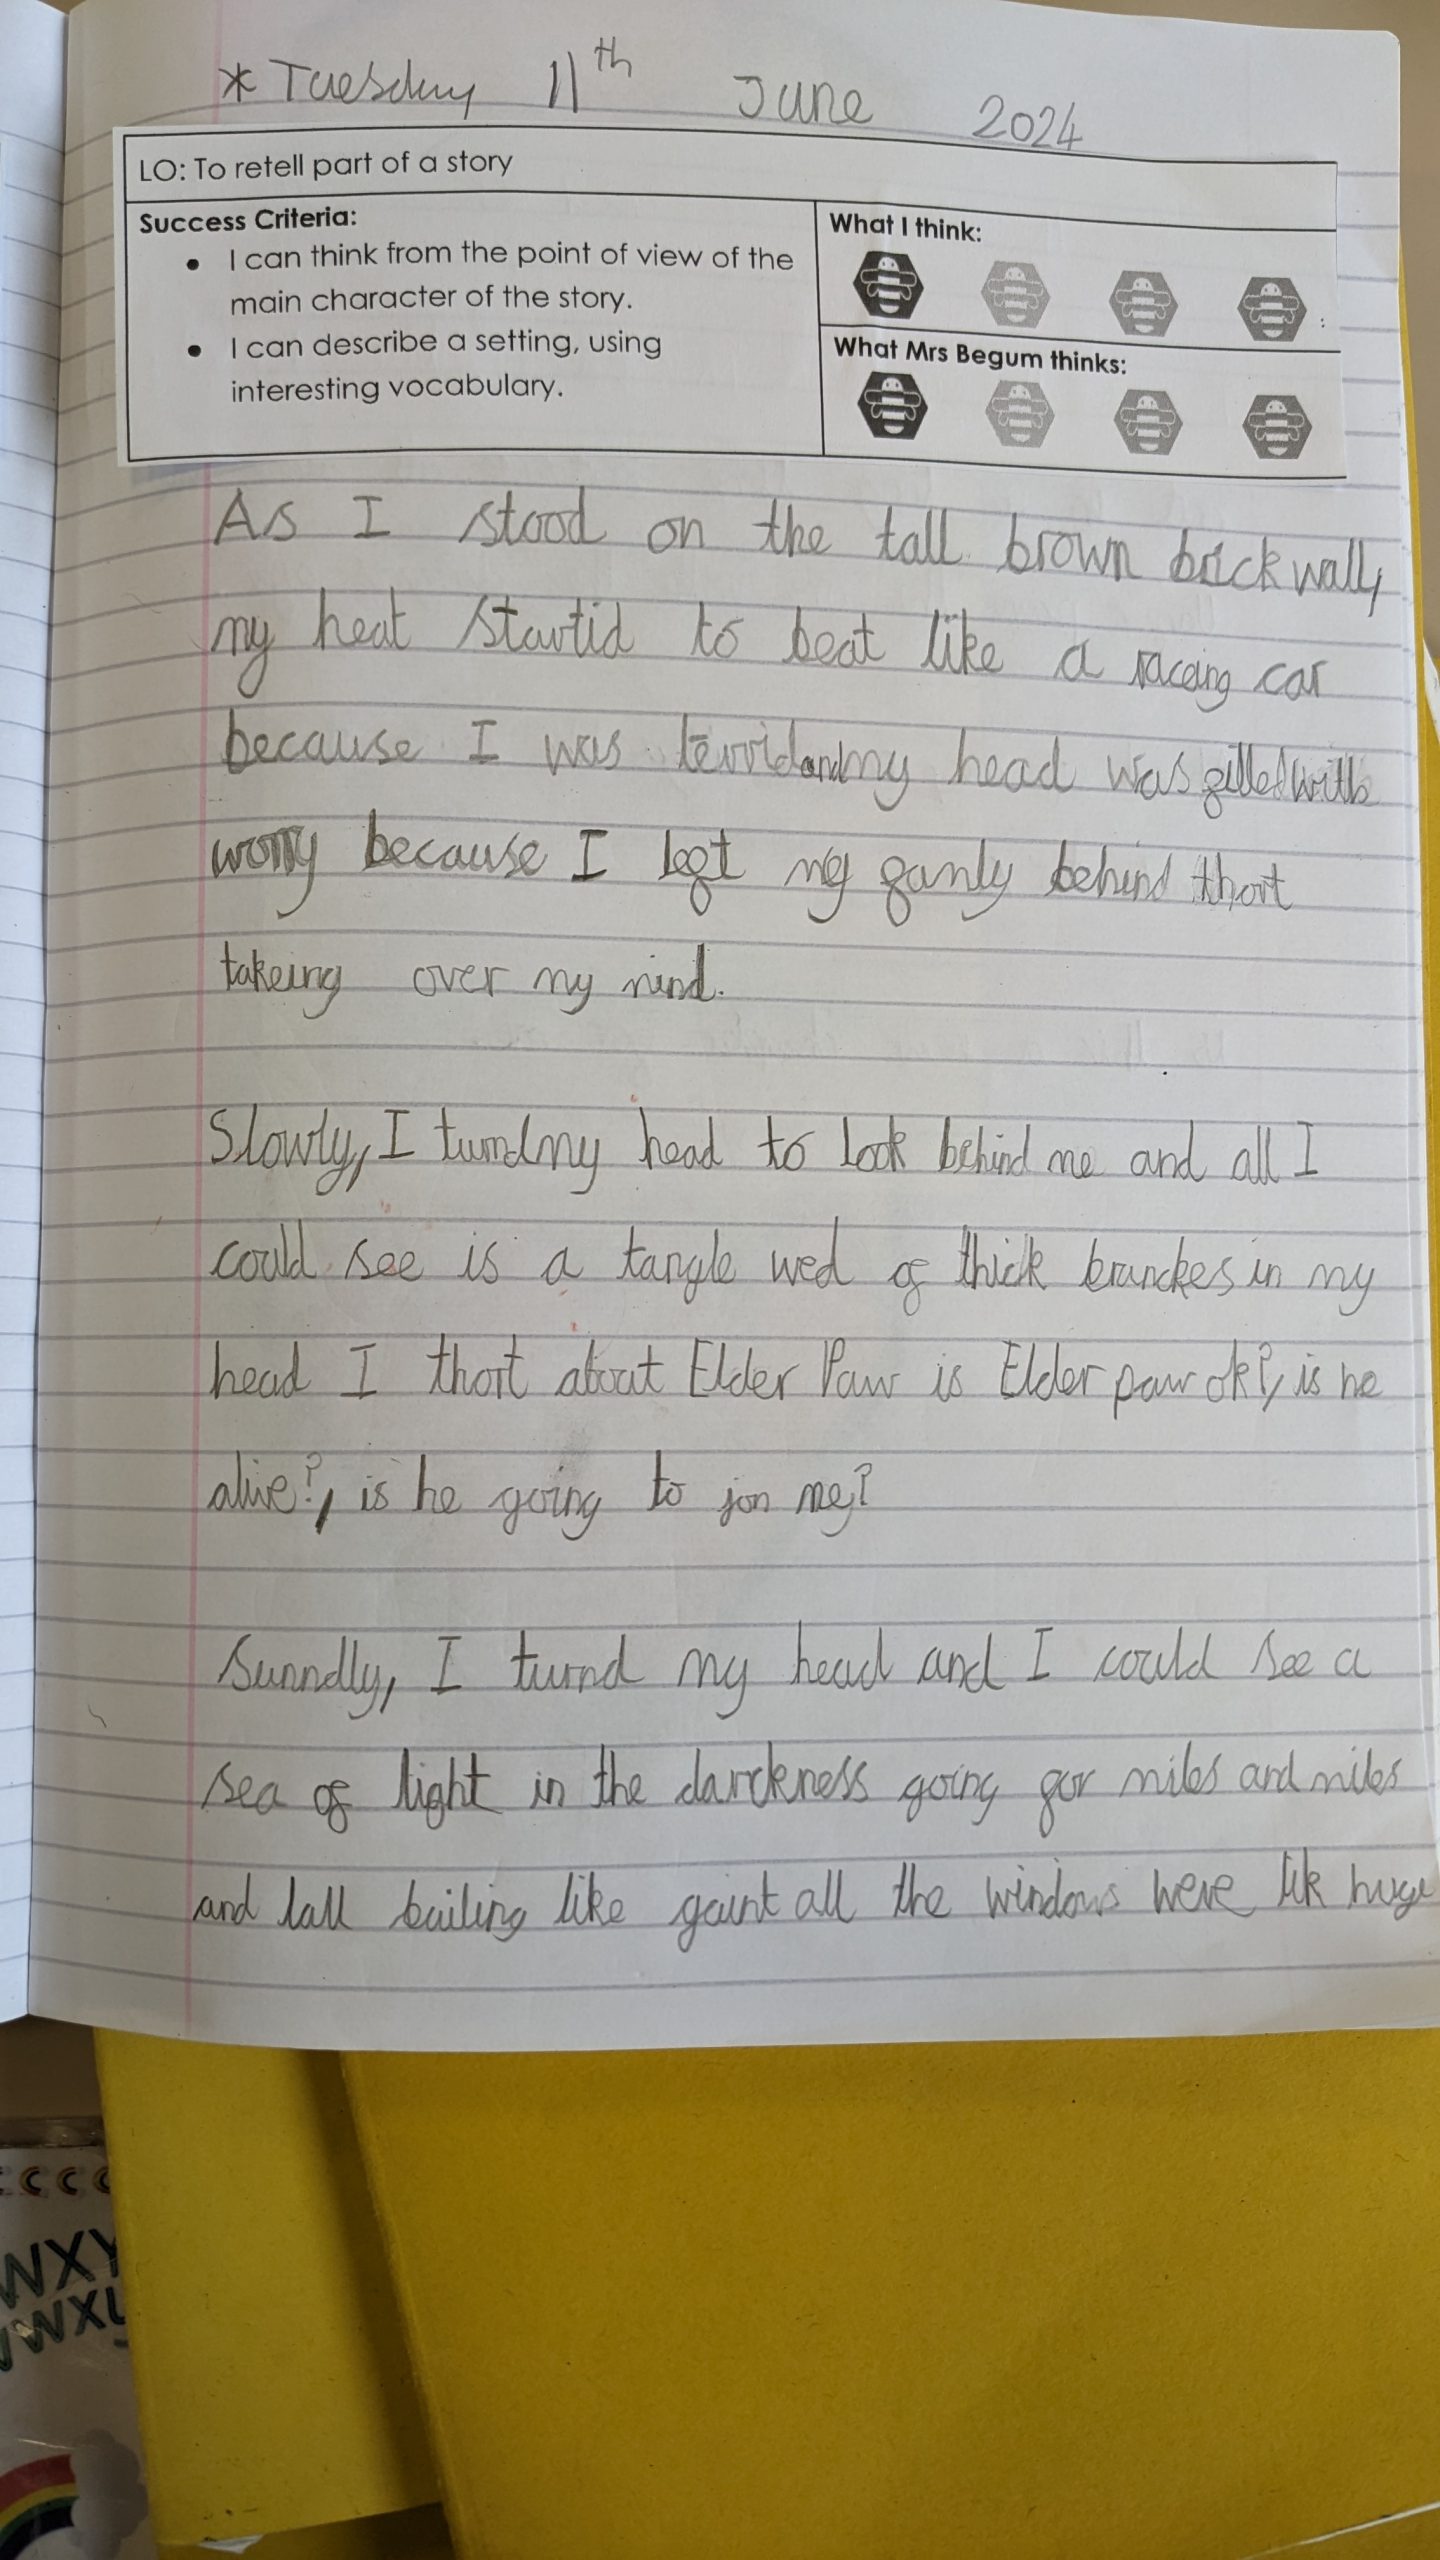 * Tuesday 11th June 2024
LO: To retell part of a story
Success Criteria:
• I can think from the point of view of the
main character of the story.
• I can describe a setting, using
interesting vocabulary.
What I think:
What Mrs Begum thinks:
As I stood on the tall brown brick wall,
my heat startid to beat like a raceing car
because I was terrid and my head was filled with
worry because I left my famly behind thort
takeing over my mind.
Slowly, I turnd my head to look behind me and all I
could see is a tangle wed of thick branckes in my
head I thort about Elder Paw is Elder paw ok?, is he
alive?, is he going to jon me?
Sunndly, I turnd my head and I could see a
sea of light in the darckness going for miles and miles
and tall builing like gaint all the windows were lik huge
WXY
WXY